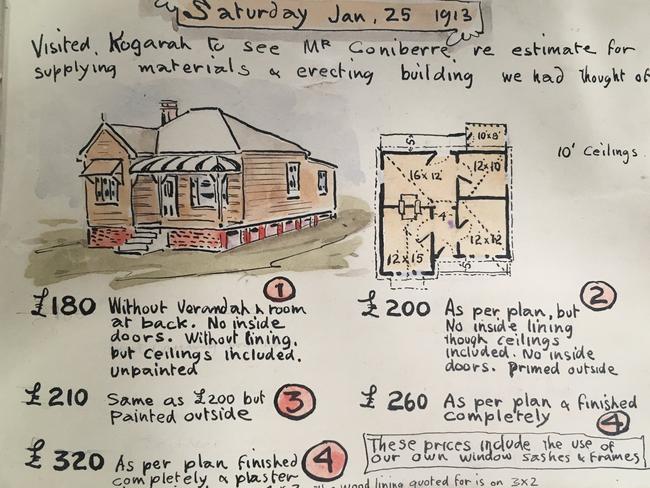 Saturday Jan, 25 1913
Visited Kogarah to see Mr Coniberre, re estimate for
supplying materials & erecting building we had thought of
10' Ceilings
10x8'
16x12'
12x10
4
12x15
12x12
5'
5'
£180 Without Verandah & room
at back. No inside
doors. Without lining,
but ceilings included.
unpainted
1
£200 As per plan, but
No inside lining
though ceilings
included. No inside
doors. Primed outside
2
£210 Same as £200 but
Painted outside
3
£260 As per plan & finished
completely
4
£320 As per plan finished
completely & plaster
4
These prices include the use of
our own window sashes & frames
wood lining quoted for is on 3x2